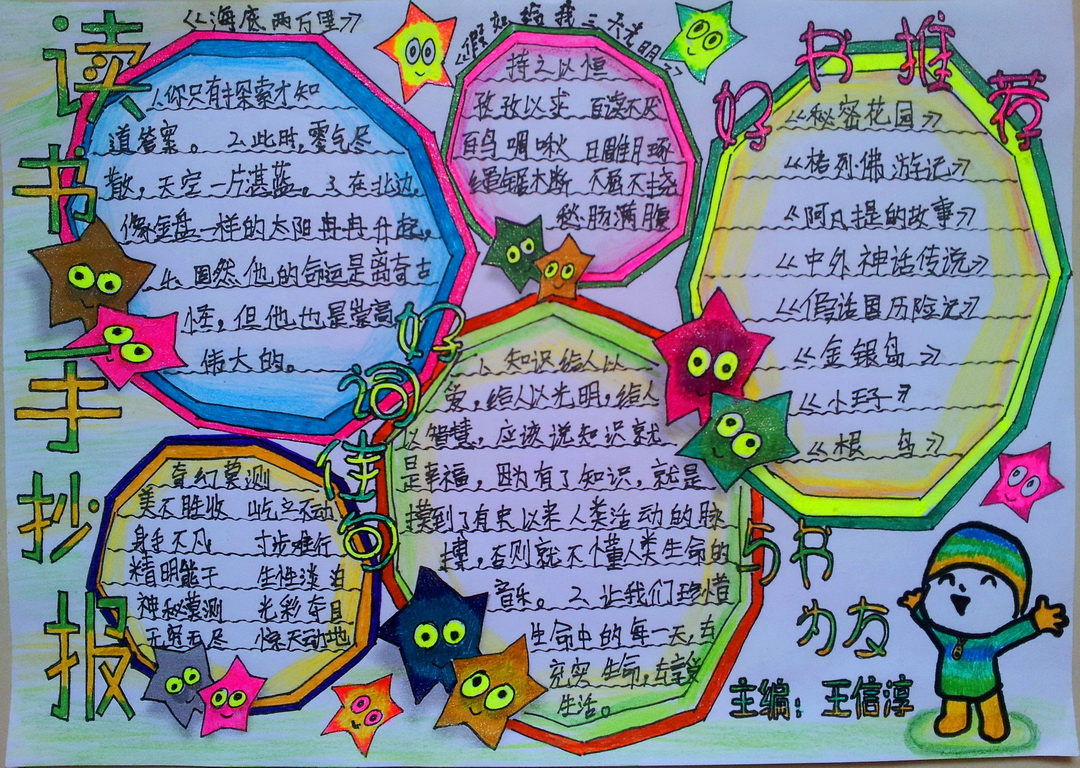 读书手抄报
《海底两万里》
1.你只有探索才知
道答案。2.此时,雾气尽
散,天空一片湛蓝。3.在北边,
像金盘一样的太阳冉冉升起。
4.固然他的命运是离奇古
怪,但他也是崇高
伟大的。
《假如给我三天光明》
持之以恒
孜孜以求 百读不厌
百鸟啁啾 日雕月琢
绳锯木断 不屈不挠
愁肠满腹
好书推荐
《秘密花园》
《格列佛游记》
《阿凡提的故事》
《中外神话传说》
《假话国历险记》
《金银岛》
《小王子》
《根鸟》
好词佳句
奇幻莫测
美不胜收 屹立不动
身手不凡 寸步难行
精明能干 生性淡泊
神秘莫测 光彩夺目
无穷无尽 惊天动地
1.知识给人以
爱,给人以光明,给人
以智慧,应该说知识就
是幸福,因为有了知识,就是
摸到了有史以来人类活动的脉
搏,否则就不懂人类生命的
音乐。2.让我们珍惜
生命中的每一天,去
充实生命,去享受
生活。
与书
为友
主编:王信淳